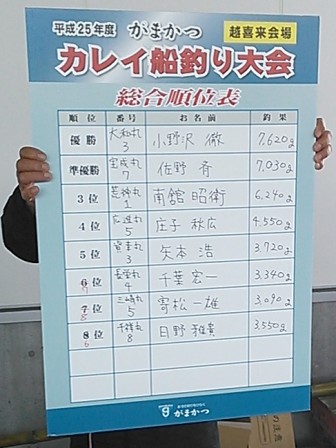 平成25年度 がまかつ 越喜来会場
カレイ船釣り大会
総合順位表
順位 番号 お名前 釣果
優勝 大和丸 3 小野沢 徹 7,620g
準優勝 宝成丸 7 佐野 斉 7,030g
3位 1 南舘 昭衛 6,240g
4位 広進丸 5 庄子 秋広 4,550g
5位 3 矢本 浩 3,720g
6 7位 長栄丸 4 千葉 宏一 3,340g
7 8位 三崎丸 5 寄松 一雄 3,090g
8 6位 千勝丸 8 日野 雅貴 3,550g
がまかつ